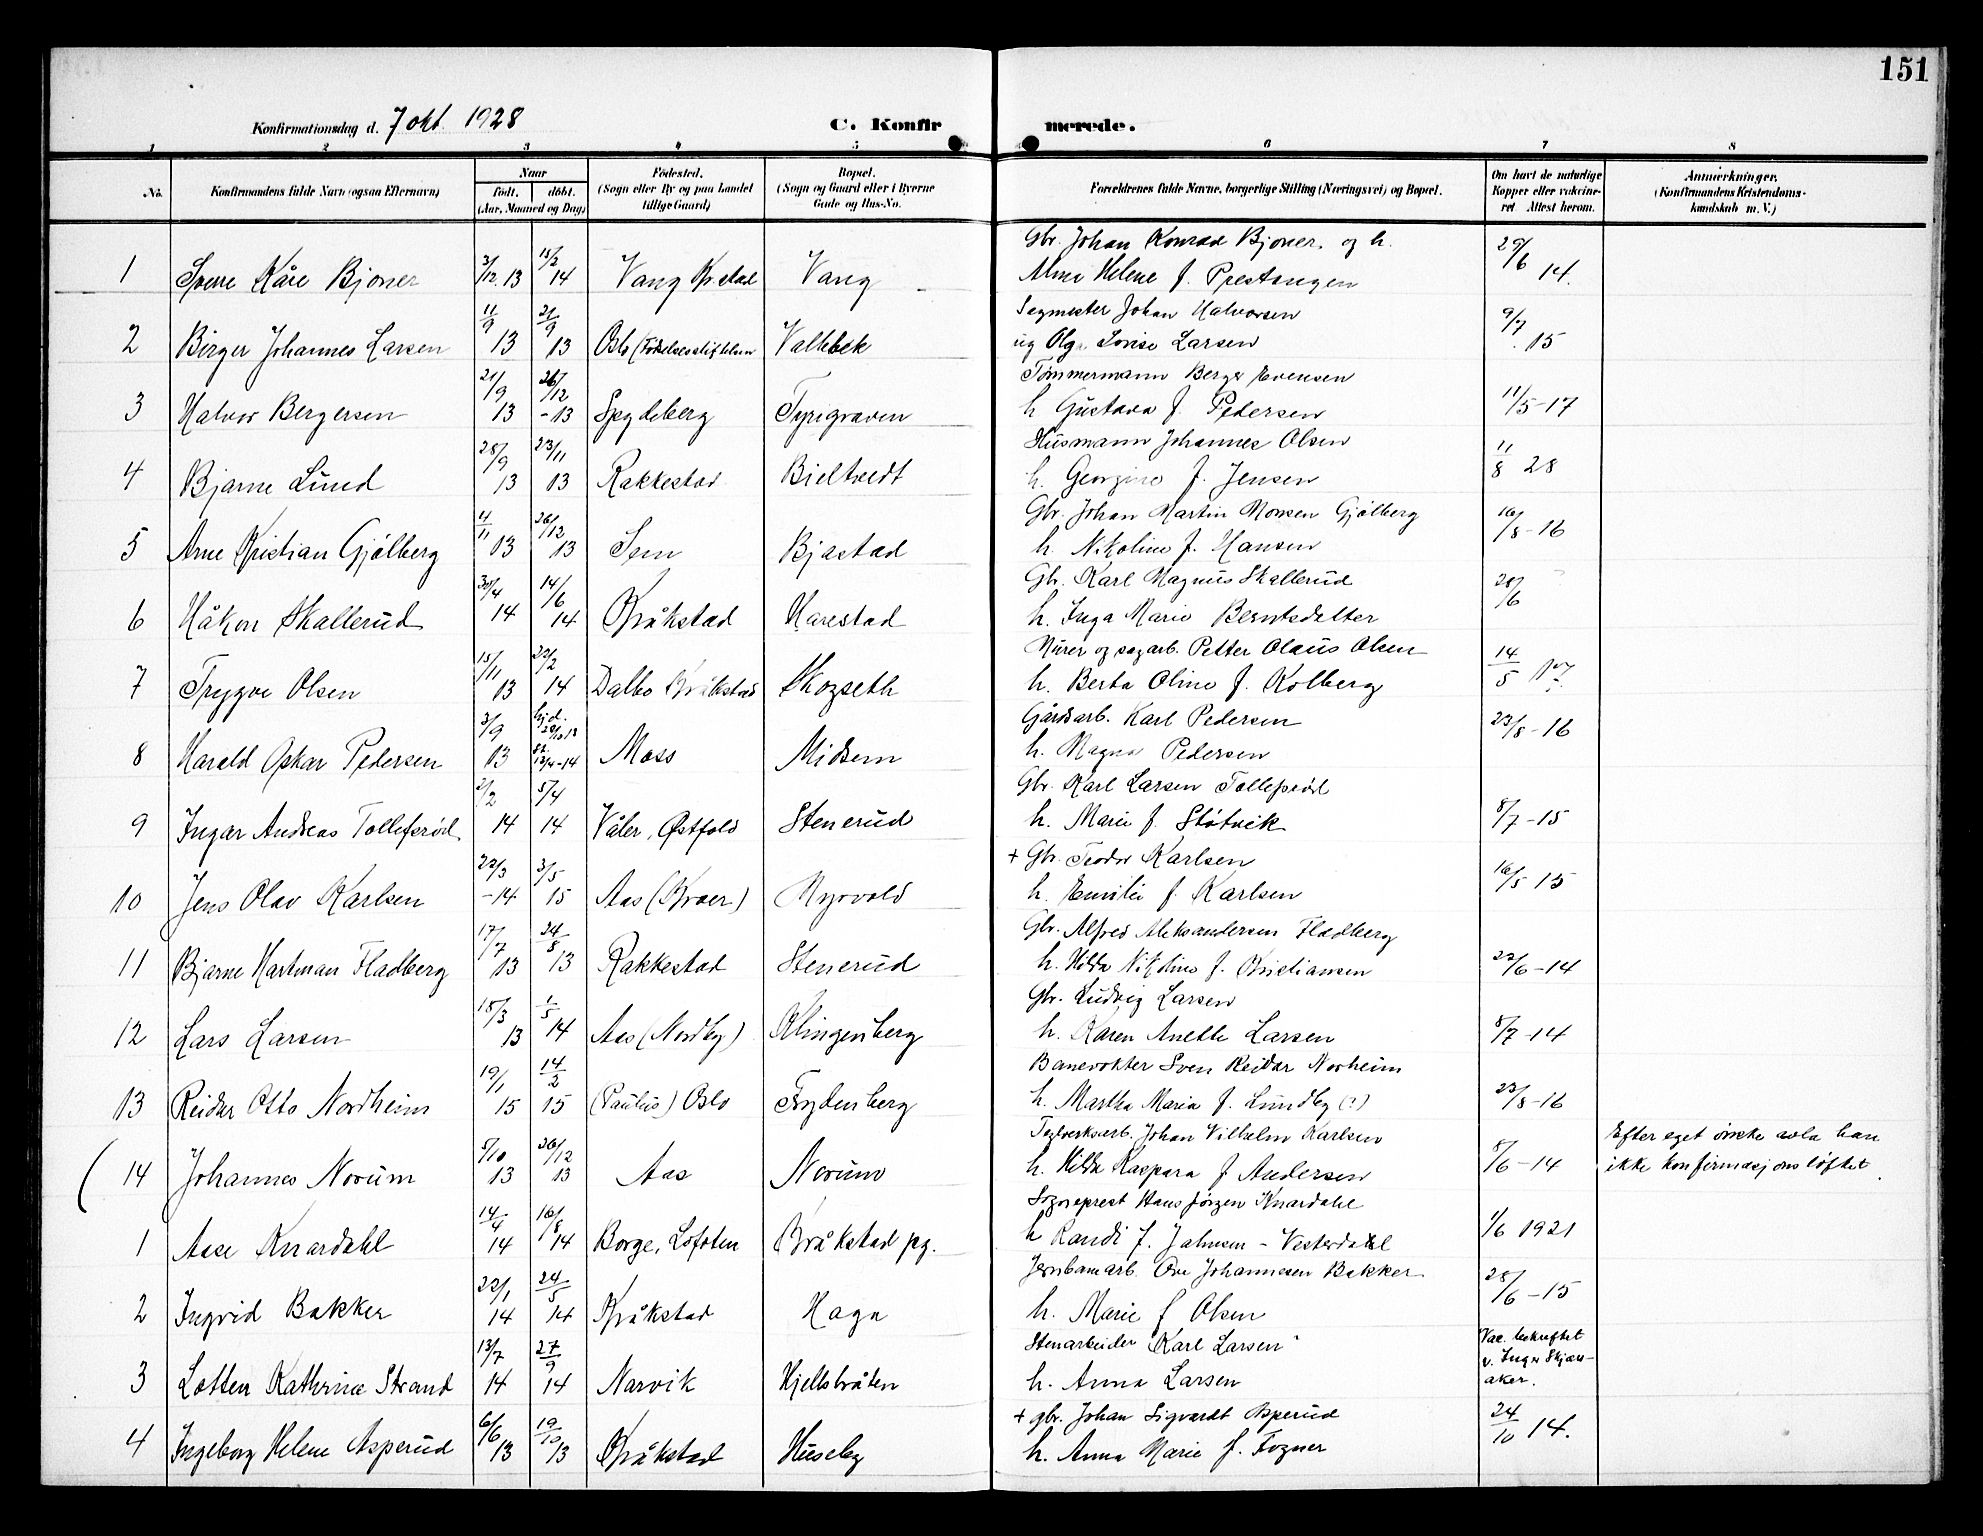 151
Konfirmationsdag d. 7 okt. 1928
C. Konfirmerede.
1 2 3 4 5 6 7 8
No. Konfirmandens fulde Navn (ogsaa Efternavn) Naar født. døbt. (Aar, Maaned og Dag) Fødested. (Sogn eller By og paa Landet tillige Gaard) Bopæl. (Sogn og Gaard eller i Byerne Gade og Hus-No. Forældrenes fulde Navne, borgerlige Stilling (Næringsvei) og Bopæl. Om havt de naturlige Kopper eller vakcineret Attest herom. Anmerkninger. (Konfirmandens Kristendomskundskab m. V.)
Gbr. Johan Konrad Bjoner og h.
1 Sverre Kåre Bjoner 3/12. 13 11/2 14 Vang Kr.stad Vang Alma Helene f. Prestangen 29/6 14.
Sagmester Johan Halvorsen
2 Birger Johannes Larsen 11/9 13 21/9 13 Oslo (Fødselsstiftelsen Vallebek og Olga Lovise Larsen 9/7 15
Tømmermann Berger Evensen
3 Halvor Bergersen 21/9 13 26/12 -13 Spydeberg Tyrigraven h. Gustava f. Pedersen 11/5-17
Husmann Johannes Olsen
4 Bjarne Lund 28/9 13 23/11 13 Rakkestad Bjeltvedt h. Georgine f. Jensen 11/8 28
Gbr. Johan Martin Monsen Gjølberg
5 Arne Kristian Gjølberg 4/11 03 26/12 13 Sem Bjastad h. Nikoline f. Hansen 16/8-16
Gbr. Karl Magnus Skallerud
6 Håkon Skallerud 30/4 14 14/6 14 Kråkstad Harestad h. Inga Marie Berntsdatter 20/6
Murer og sagarb. Petter Olaus Olsen
7 Trygve Olsen 15/11 03 22/2 14 Kråkstad h. Berta Oline f. Kolberg 14/5
Gårdsarb. Karl Pedersen
8 Harald Oskar Pedersen 3/9 03 hjd. 13/4-14 Moss Midsem h. Magna Pedersen 23/8-16
Gbr. Karl Larsen Tollefsrød
9 Ingar Andreas Tollefsrød 2/2 14 5/4 14 Våler, Østfold Stenerud h. Marie f. Støtvik 8/7-15
+ Gbr. Teodor Karlsen
10 Jens Olav Karlsen 22/3 -14 3/5 15 Aas (Kroer) Myrvold h. Emilie f. Karlsen 16/5 15
Gbr. Alfred Aleksandersen Fladberg
11 Bjarne Hartman Fladberg 17/7 03 24/8 13 Rakkestad Stenerud h. Hilda Nikoline f. Kristiansen 22/6-14
Gbr. Ludvig Larsen
12 Lars Larsen 15/3 13 1/5 14 Aas (Nordby) Klingenberg h. Karen Anette Larsen 8/7-14
Banevokter Sven Reidar Norheim
13 Reidar Otto Nordheim 19/1 15 14/2 15 (Paulus) Oslo Frydenberg h. Martha Maria f. Lundby (?) 23/8-16
Teglverksarb. Johan Vilhelm Karlsen Efter eget ønske avla han
( 14 Johannes Norum 5/10 13 26/12 13 Aas Norum h. Hilda Kaspara f. Andersen 8/6-14 ikke konfirmasjonsløftet.
Sogneprest Hans Jørgen Knardahl
1 Aase Knardahl 14/4 14 16/8 14 Borge, Lofoten Kråkstad pg. h Randi f. Jahnsen - Vesterdahl 1/6 1921
Jernbanearb. Ove Johannesen Bakker
2 Ingrid Bakker 22/1 14 24/5 14 Kråkstad Haga h. Marie f Olsen 28/6-15
Stenarbeider Karl Larsen
3 Lotten Kathrine Strand 13/7 14 27/9 14 Narvik Kjellsbråten h. Anna Larsen Vac. bekreftet v. Inga Skjæraker.
+ gbr. Johan Sigvardt Asperud
4 Ingeborg Helene Asperud 6/6 13 19/10 13 Kråkstad Huseby h. Anna Marie f. Fogner 24/10 14.